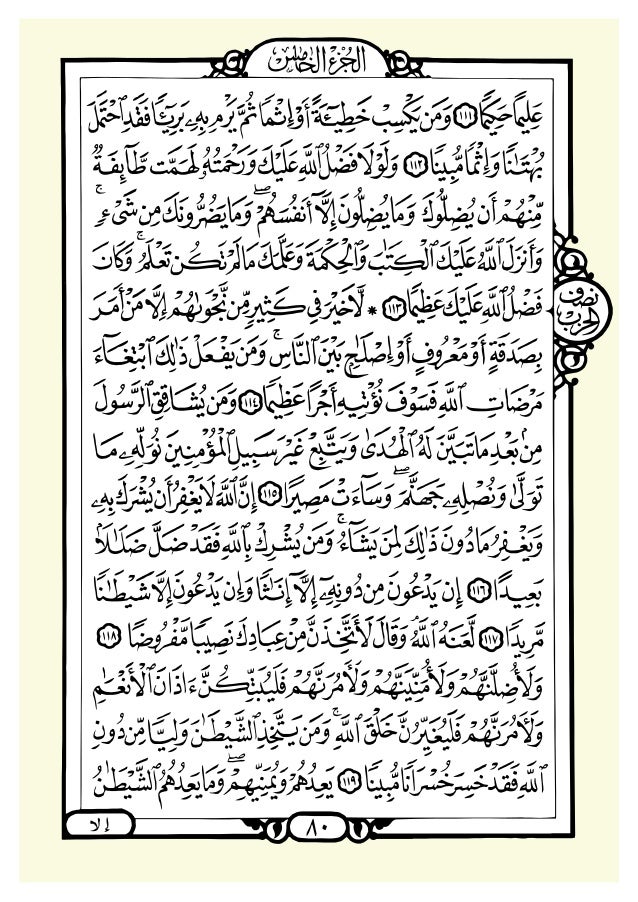 الجزء الخامس
عَلِيمًا حَكِيمًا ١١١ وَمَن يَكْسِبْ خَطِيٓـَٔةً أَوْ إِثْمًا ثُمَّ يَرْمِ بِهِۦ بَرِيٓـًٔا فَقَدِ ٱحْتَمَلَ
بُهْتَـٰنًا وَإِثْمًا مُّبِينًا ١١٢ وَلَوْلَا فَضْلُ ٱللَّهِ عَلَيْكَ وَرَحْمَتُهُۥ لَهَمَّت طَّآئِفَةٌ
مِّنْهُمْ أَن يُضِلُّوكَ وَمَا يُضِلُّونَ إِلَّآ أَنفُسَهُمْ ۖ وَمَا يَضُرُّونَكَ مِن شَىْءٍ ۚ
وَأَنزَلَ ٱللَّهُ عَلَيْكَ ٱلْكِتَـٰبَ وَٱلْحِكْمَةَ وَعَلَّمَكَ مَا لَمْ تَكُن تَعْلَمُ ۚ وَكَانَ
فَضْلُ ٱللَّهِ عَلَيْكَ عَظِيمًا ١١٣ * لَّا خَيْرَ فِى كَثِيرٍ مِّن نَّجْوَىٰهُمْ إِلَّا مَنْ أَمَرَ
نصف الحزب
بِصَدَقَةٍ أَوْ مَعْرُوفٍ أَوْ إِصْلَـٰحٍۭ بَيْنَ ٱلنَّاسِ ۚ وَمَن يَفْعَلْ ذَٰلِكَ ٱبْتِغَآءَ
مَرْضَاتِ ٱللَّهِ فَسَوْفَ نُؤْتِيهِ أَجْرًا عَظِيمًا ١١٤ وَمَن يُشَاقِقِ ٱلرَّسُولَ
مِنۢ بَعْدِ مَا تَبَيَّنَ لَهُ ٱلْهُدَىٰ وَيَتَّبِعْ غَيْرَ سَبِيلِ ٱلْمُؤْمِنِينَ نُوَلِّهِۦ مَا
تَوَلَّىٰ وَنُصْلِهِۦ جَهَنَّمَ ۖ وَسَآءَتْ مَصِيرًا ١١٥ إِنَّ ٱللَّهَ لَا يَغْفِرُ أَن يُشْرَكَ بِهِۦ
وَيَغْفِرُ مَا دُونَ ذَٰلِكَ لِمَن يَشَآءُ ۚ وَمَن يُشْرِكْ بِٱللَّهِ فَقَدْ ضَلَّ ضَلَـٰلًۢا
بَعِيدًا ١١٦ إِن يَدْعُونَ مِن دُونِهِۦٓ إِلَّآ إِنَـٰثًا وَإِن يَدْعُونَ إِلَّا شَيْطَـٰنًا
مَّرِيدًا ١١٧ لَّعَنَهُ ٱللَّهُ ۘ وَقَالَ لَأَتَّخِذَنَّ مِنْ عِبَادِكَ نَصِيبًا مَّفْرُوضًا ١١٨
وَلَأُضِلَّنَّهُمْ وَلَأُمَنِّيَنَّهُمْ وَلَـَٔامُرَنَّهُمْ فَلَيُبَتِّكُنَّ ءَاذَانَ ٱلْأَنْعَـٰمِ
وَلَـَٔامُرَنَّهُمْ فَلَيُغَيِّرُنَّ خَلْقَ ٱللَّهِ ۚ وَمَن يَتَّخِذِ ٱلشَّيْطَـٰنَ وَلِيًّا مِّن دُونِ
ٱللَّهِ فَقَدْ خَسِرَ خُسْرَانًا مُّبِينًا ١١٩ يَعِدُهُمْ وَيُمَنِّيهِمْ ۖ وَمَا يَعِدُهُمُ ٱلشَّيْطَـٰنُ
إلا
٨٠